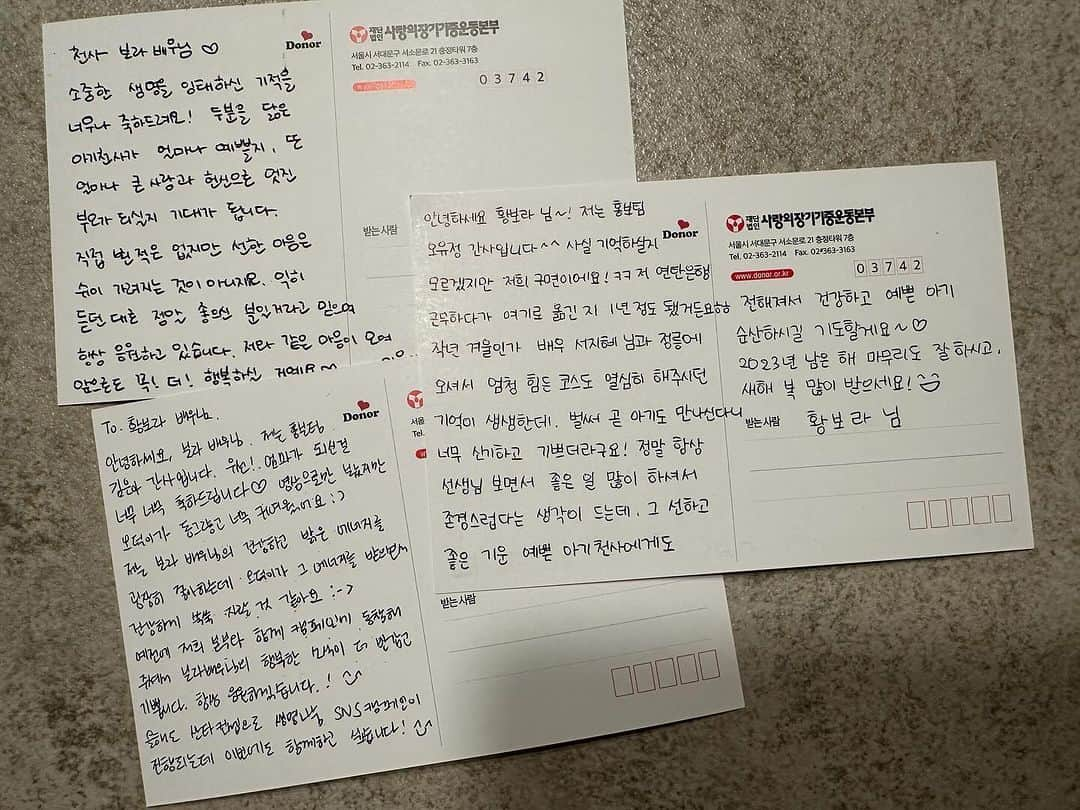 천사 보라 배우님 ♡
소중한 생명을 잉태하신 기적을
너무나 축하드려요! 두분을 닮은
아기천사가 얼마나 예쁠지, 또
얼마나 큰 사랑과 헌신으로 멋진
부모가 되실지 기대가 됩니다.
직접 뵌 적은 없지만 선한 마음은
숨이 가려지는 것이 아니지요. 익히
듣던 대로 정말 좋으신 분일거라고 믿으며
항상 응원하고 있습니다. 저와 같은 마음이 모여
앞으로도 꼭! 더! 행복하실 거예요
Donor
재단법인 사랑의장기기증운동본부
서울시 서대문구 서소문로 21 충정타워 7층
Tel. 02-363-2114 Fax. 02-363-3163
03742
받는 사람
안녕하세요 황보라 님~! 저는 홍보팀
오유정 간사입니다^^ 사실 기억하실지
모르겠지만 저희 구면이에요! ㅋㅋ 저 연탄은행
근무하다가 여기로 옮긴 지 1년 정도 됐거든요ㅎㅎ
작년 겨울인가 배우 서지혜 님과 정릉에
오셔서 엄청 힘든 코스도 열심히 해주시던
기억이 생생한데. 벌써 곧 아기도 만나신다니
너무 신기하고 기쁘더라구요! 정말 항상
선생님 보면서 좋은 일 많이 하셔서
존경스럽다는 생각이 드는데. 그 선하고
좋은 기운 예쁜 아기천사에게도
Donor
재단법인 사랑의장기기증운동본부
서울시 서대문구 서소문로 21 충정타워 7층
Tel. 02-363-2114 Fax. 02-363-3163
www.donor.or.kr
03742
전해져서 건강하고 예쁜 아기
순산하시길 기도할게요~♡
2023년 남은 해 마무리도 잘 하시고,
새해 복 많이 받으세요!
받는 사람 황보라 님
To. 황보라 배우님.
안녕하세요, 보라 배우님. 저는 홍보팀
김은 간사입니다. 우선! 엄마가 되신걸
너무 너무 축하드립니다♡ 영상으로만 봤지만
오덕이가 동그랗고 너무 귀여웠어요 :)
저는 보라 배우님의 건강하고 밝은 에너지를
굉장히 좋아하는데 오덕이가 그 에너지를 받으면서
건강하게 쑥쑥 자랄 것 같아요 :->
예전에 저희 본부와 함께 캠페인에 동참해
주셔서 보라배우님의 행복한 소식이 더 반갑고
기쁩니다. 항상 응원하겠습니다.!
올해도 산타 컨셉으로 생명나눔 SNS캠페인이
진행되는데 이번에도 함께하고 싶습니다!
Donor
Tel.
받는 사람